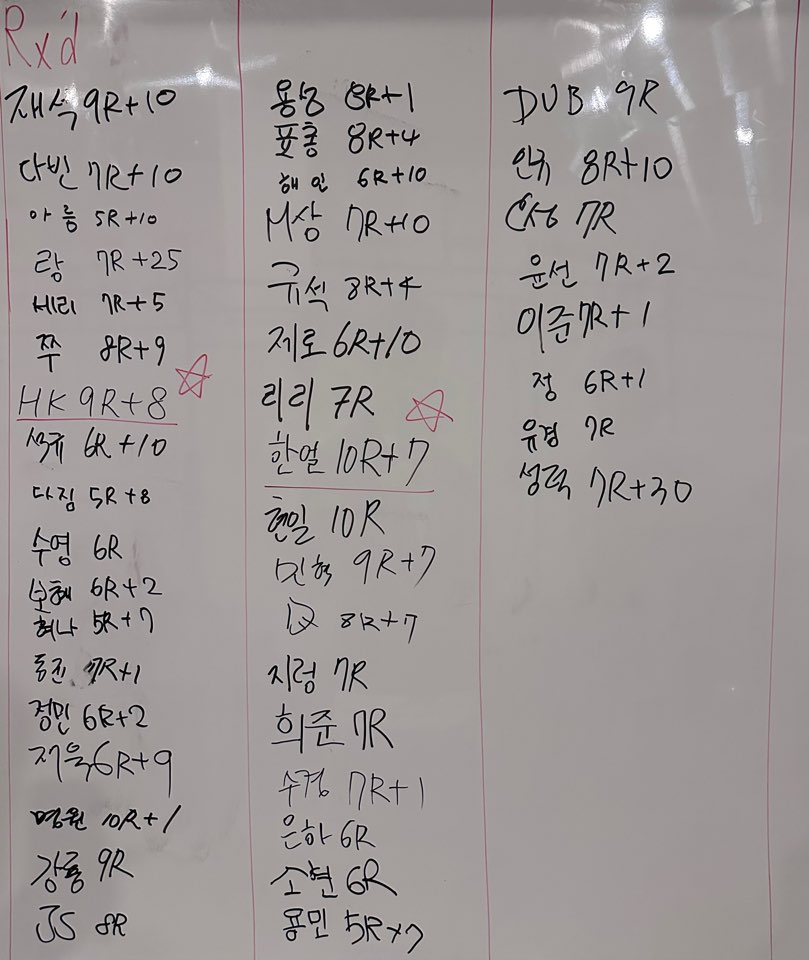 Rx'd
재석 9R+10
다빈 7R+10
아름 5R+10
랑 7R+25
세리 7R+5
쭈 8R+9
HK 9R+8
석규 6R+10
다짐 5R+8
수영 6R
보혜 6R+2
혀나 5R+7
동진 7R+1
정민 6R+2
지욱 6R+9
명원 10R+1
강룡 9R
JS 8R
용성 8R+1
푯총 8R+4
해인 6R+10
M상 7R+10
규석 8R+4
제로 6R+10
리리 7R
한얼 10R+7
현일 10R
민혁 9R+7
8R+7
지렁 7R
희준 7R
수경 7R+1
은하 6R
소현 6R
용민 5R+7
DUB 9R
인규 8R+10
7R
윤선 7R+2
이준 7R+1
정 6R+1
유경 7R
성력 7R+30